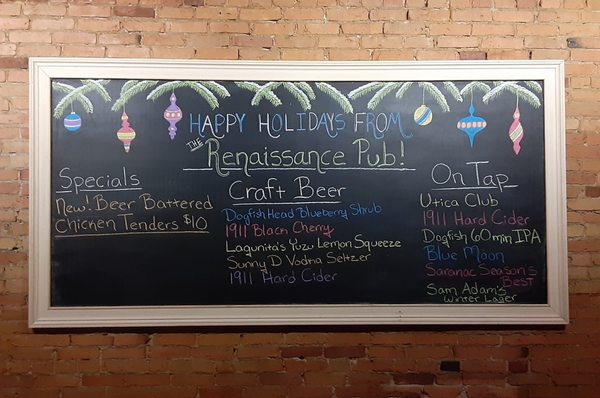 HAPPY HOLIDAYS FROM
THE
RENAISSANCE PUB!
Specials
New! Beer Battered
Chicken Tenders $10
Craft Beer
Dogfish Head Blueberry Shrub
1911 Black Cherry
Lagunita's Yuzu Lemon Squeeze
Sunny D Vodka Seltzer
1911 Hard Cider
On Tap
Utica Club
1911 Hard Cider
Dogfish 60 min IPA
Blue Moon
Saranac Season's
Best
Sam Adam's
Winter Lager